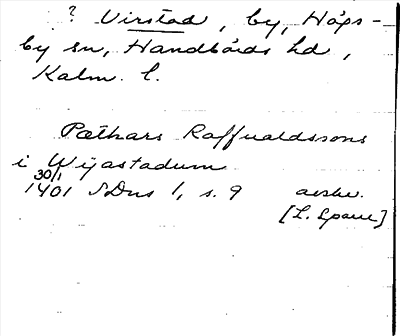 ? Virstad, by, Högs-
by sn, Handbörds hd,
Kalm. l.
Pæthars Raffualdssons
i Wijastadum
30/1
1401 SDns 1, s. 9 avskr.
[L. Spare]